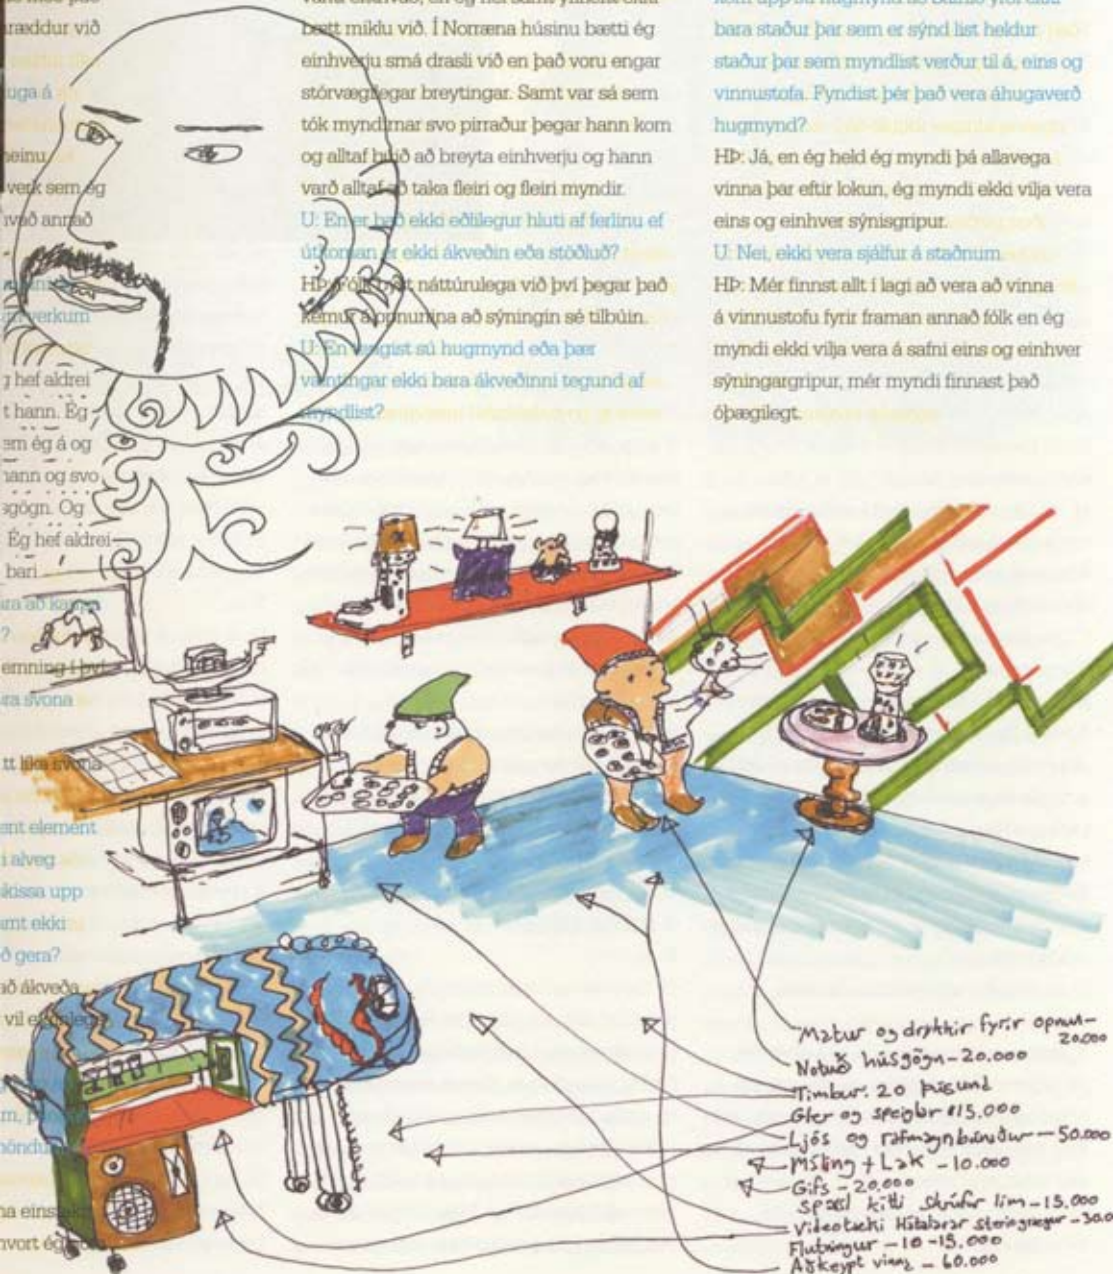 ræddur við
uga á
neinu
verk sem ég
hvað annað
verkum
g hef aldrei
t hann. Ég
em ég á og
hann og svo
sgögn. Og
Ég hef aldrei
bari
ara að kaupa
?
emning í því
ra svona
tt líka svona
ent element
í alveg
skissa upp
amt ekki
ð gera?
að ákveða
vil
na
hvort ég
bætt miklu við. Í Norræna húsinu bætti ég
einhverju smá drasli við en það voru engar
stórvægilegar breytingar. Samt var sá sem
tók myndirnar svo pirraður þegar hann kom
og alltaf búið að breyta einhverju og hann
varð alltaf að taka fleiri og fleiri myndir.
U: En er það ekki eðlilegur hluti af ferlinu ef
útkoman er ekki ákveðin eða stöðluð?
HÞ: Fólk býst náttúrulega við því þegar það
kemur á opnunina að sýningin sé tilbúin.
U: En tengist sú hugmynd eða þær
væntingar ekki bara ákveðinni tegund af
myndlist?
bara staður þar sem er sýnd list heldur
staður þar sem myndlist verður til á, eins og
vinnustofa. Fyndist þér það vera áhugaverð
hugmynd?
HÞ: Já, en ég held ég myndi þá allavega
vinna þar eftir lokun, ég myndi ekki vilja vera
eins og einhver sýnisgripur.
U: Nei, ekki vera sjálfur á staðnum.
HÞ: Mér finnst allt í lagi að vera að vinna
á vinnustofu fyrir framan annað fólk en ég
myndi ekki vilja vera á safni eins og einhver
sýningargripur, mér myndi finnast það
óþægilegt.
Matur og drykkir fyrir opnun-
20.000
Notuð húsgögn - 20.000
Timbur. 20 þúsund
Gler og speiglar 15.000
Ljós og rafmagnbúnaður - 50.000
Máling + Lak - 10.000
Gifs - 20.000
spasl kitti skrúfur lím - 15.000
Videotæki Hátalarar
Flutningur - 10 - 15.000
Aðkeypt vinna - 60.000